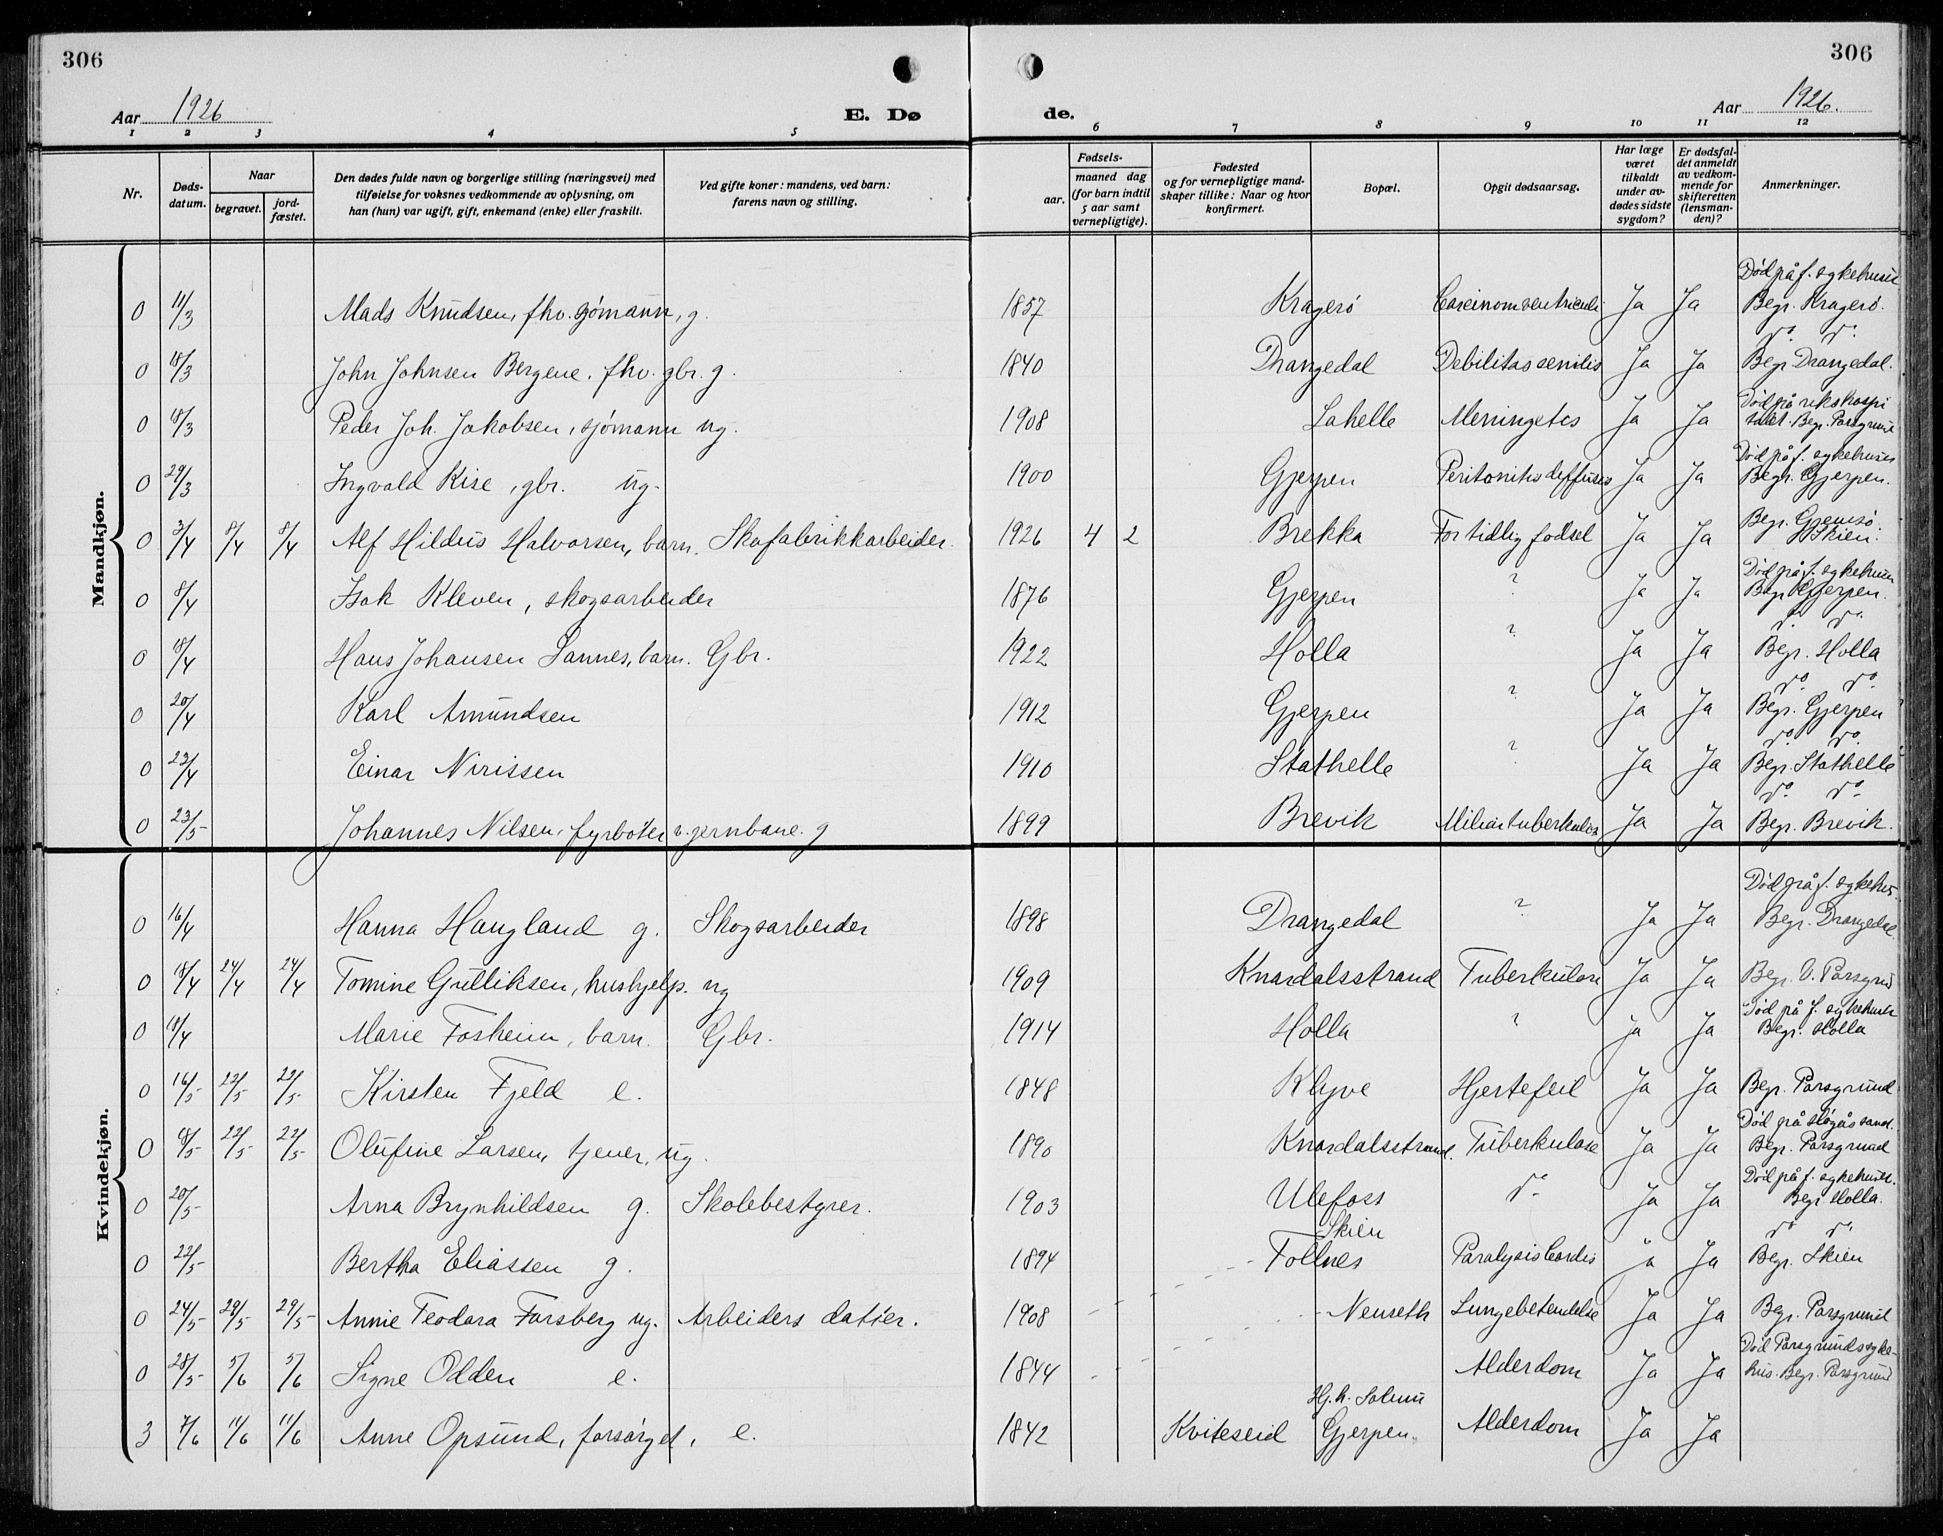 306
306
Aar 1926
E. Dø
de.
Aar 1926.
1 2 3 4 5 6 7 8 9 10 11 12
Nr.
Døds-
datum.
Naar
begravet.
jord-
fæstet.
Den dødes fulde navn og borgerlige stilling (næringsvei) med
tilføielse for voksnes vedkommende av oplysning, om
han (hun) var ugift, gift, enkemand (enke) eller fraskilt.
Ved gifte koner: mandens, ved barn:
farens navn og stilling.
Fødsels-
aar.
maaned dag
(for barn indtil
5 aar samt
vernepligtige).
Fødested
og for vernepligtige mand-
skaper tillike: Naar og hvor
konfirmert.
Bopæl.
Opgit dødsaarsag.
Har læge
været
tilkaldt
under av-
dødes sidste
sygdom?
Er dødsfal-
det anmeldt
av vedkom-
mende for
skifteretten
(lensman-
den)?
Anmerkninger.
Mandkjøn.
0 11/3 Mads Knudsen, fhv. sjømann, g. 1857 Kragerø Ja Ja Død på f. sykehuset Begr. Kragerø.
0 18/3 John Johnsen Bergene. fhv. gbr. g. 1840 Drangedal Debilitas senilis Ja Ja do do Begr. Drangedal.
0 18/3 Peder Joh. Jakobsen, sjømann ug. 1908 Lahelle Ja Ja Død på rikshospi talet. Begr. Porsgrund
0 29/3 Ingvald Kise, gbr. ug. 1900 Gjerpen Ja Ja Død på f. sykehuset Begr. Gjerpen.
0 3/4 8/4 8/4 Alf Hildus Halvorsen, barn. Skofabrikkarbeider. 1926 4 2 Brekka For tidlig fødsel Ja Ja Begr. Gjemsø Skien.
0 8/4 Isak Kleven, skogsarbeider 1876 Gjerpen ? Ja Ja Død på f. sykehuset Begr. Gjerpen.
0 18/4 Hans Johansen Sannes, barn. Gbr. 1922 Holla ? Ja Ja do do Begr. Holla
0 20/4 Karl Amundsen 1912 Gjerpen ? Ja Ja do do Begr. Gjerpen
0 23/4 Einar Nirissen 1910 Stathelle ? Ja Ja do do Begr. Stathelle
0 23/5 Johannes Nilsen, fyrbøter v. jernbane. g 1899 Brevik Miliærtuberkulos Ja Ja do do Begr. Brevik.
Kvindekjøn.
0 16/4 Hanna Haugland g. Skogsarbeider 1898 Drangedal ? Ja Ja Død på f. sykehus. Begr. Drangedal.
0 18/4 24/4 24/4 Tomine Gulliksen, hushjelp. ug 1909 Knardalsstrand Tuberkulose Ja Ja Begr. V. Porsgrund
0 18/4 Marie Fosheim, barn. Gbr. 1914 Holla ? ja Ja Død på f. sykehuset Begr. Holla
0 16/5 22/5 22/5 Kirsten Fjeld e. 1848 Klyve Hjertefeil Ja Ja Begr. Porsgrund.
0 18/5 22/5 22/5 Olufine Larsen, tjener, ug. 1890 Knardalsstrand. Tuberkulose Ja Ja Begr. Porsgrund
0 20/5 Arna Brynhildsen g. Skolebestyrer. 1903 Ulefoss do Ja Ja Død på f. sykehuset. Begr. Holla.
0 22/5 Bertha Eliassen g. 1894 Skien Follnes Paralysis Cordis ja Ja do do Begr. Skien
0 24/5 29/5 29/5 Annie Teodora Forsberg ug. Arbeiders datter. 1908 Nenseth Lungebetendelse Ja Ja Begr. Porsgrund
0 28/5 5/6 5/6 Signe Odden e. 1844 Alderdom Ja Ja Død Porsgrunds syke- hus. Begr. Porsgrund
3 7/6 11/6 11/6 Anne Opsund, forsørget, e. 1842 Kviteseid Hj. h. Solum Gjerpen. Alderdom Ja Ja